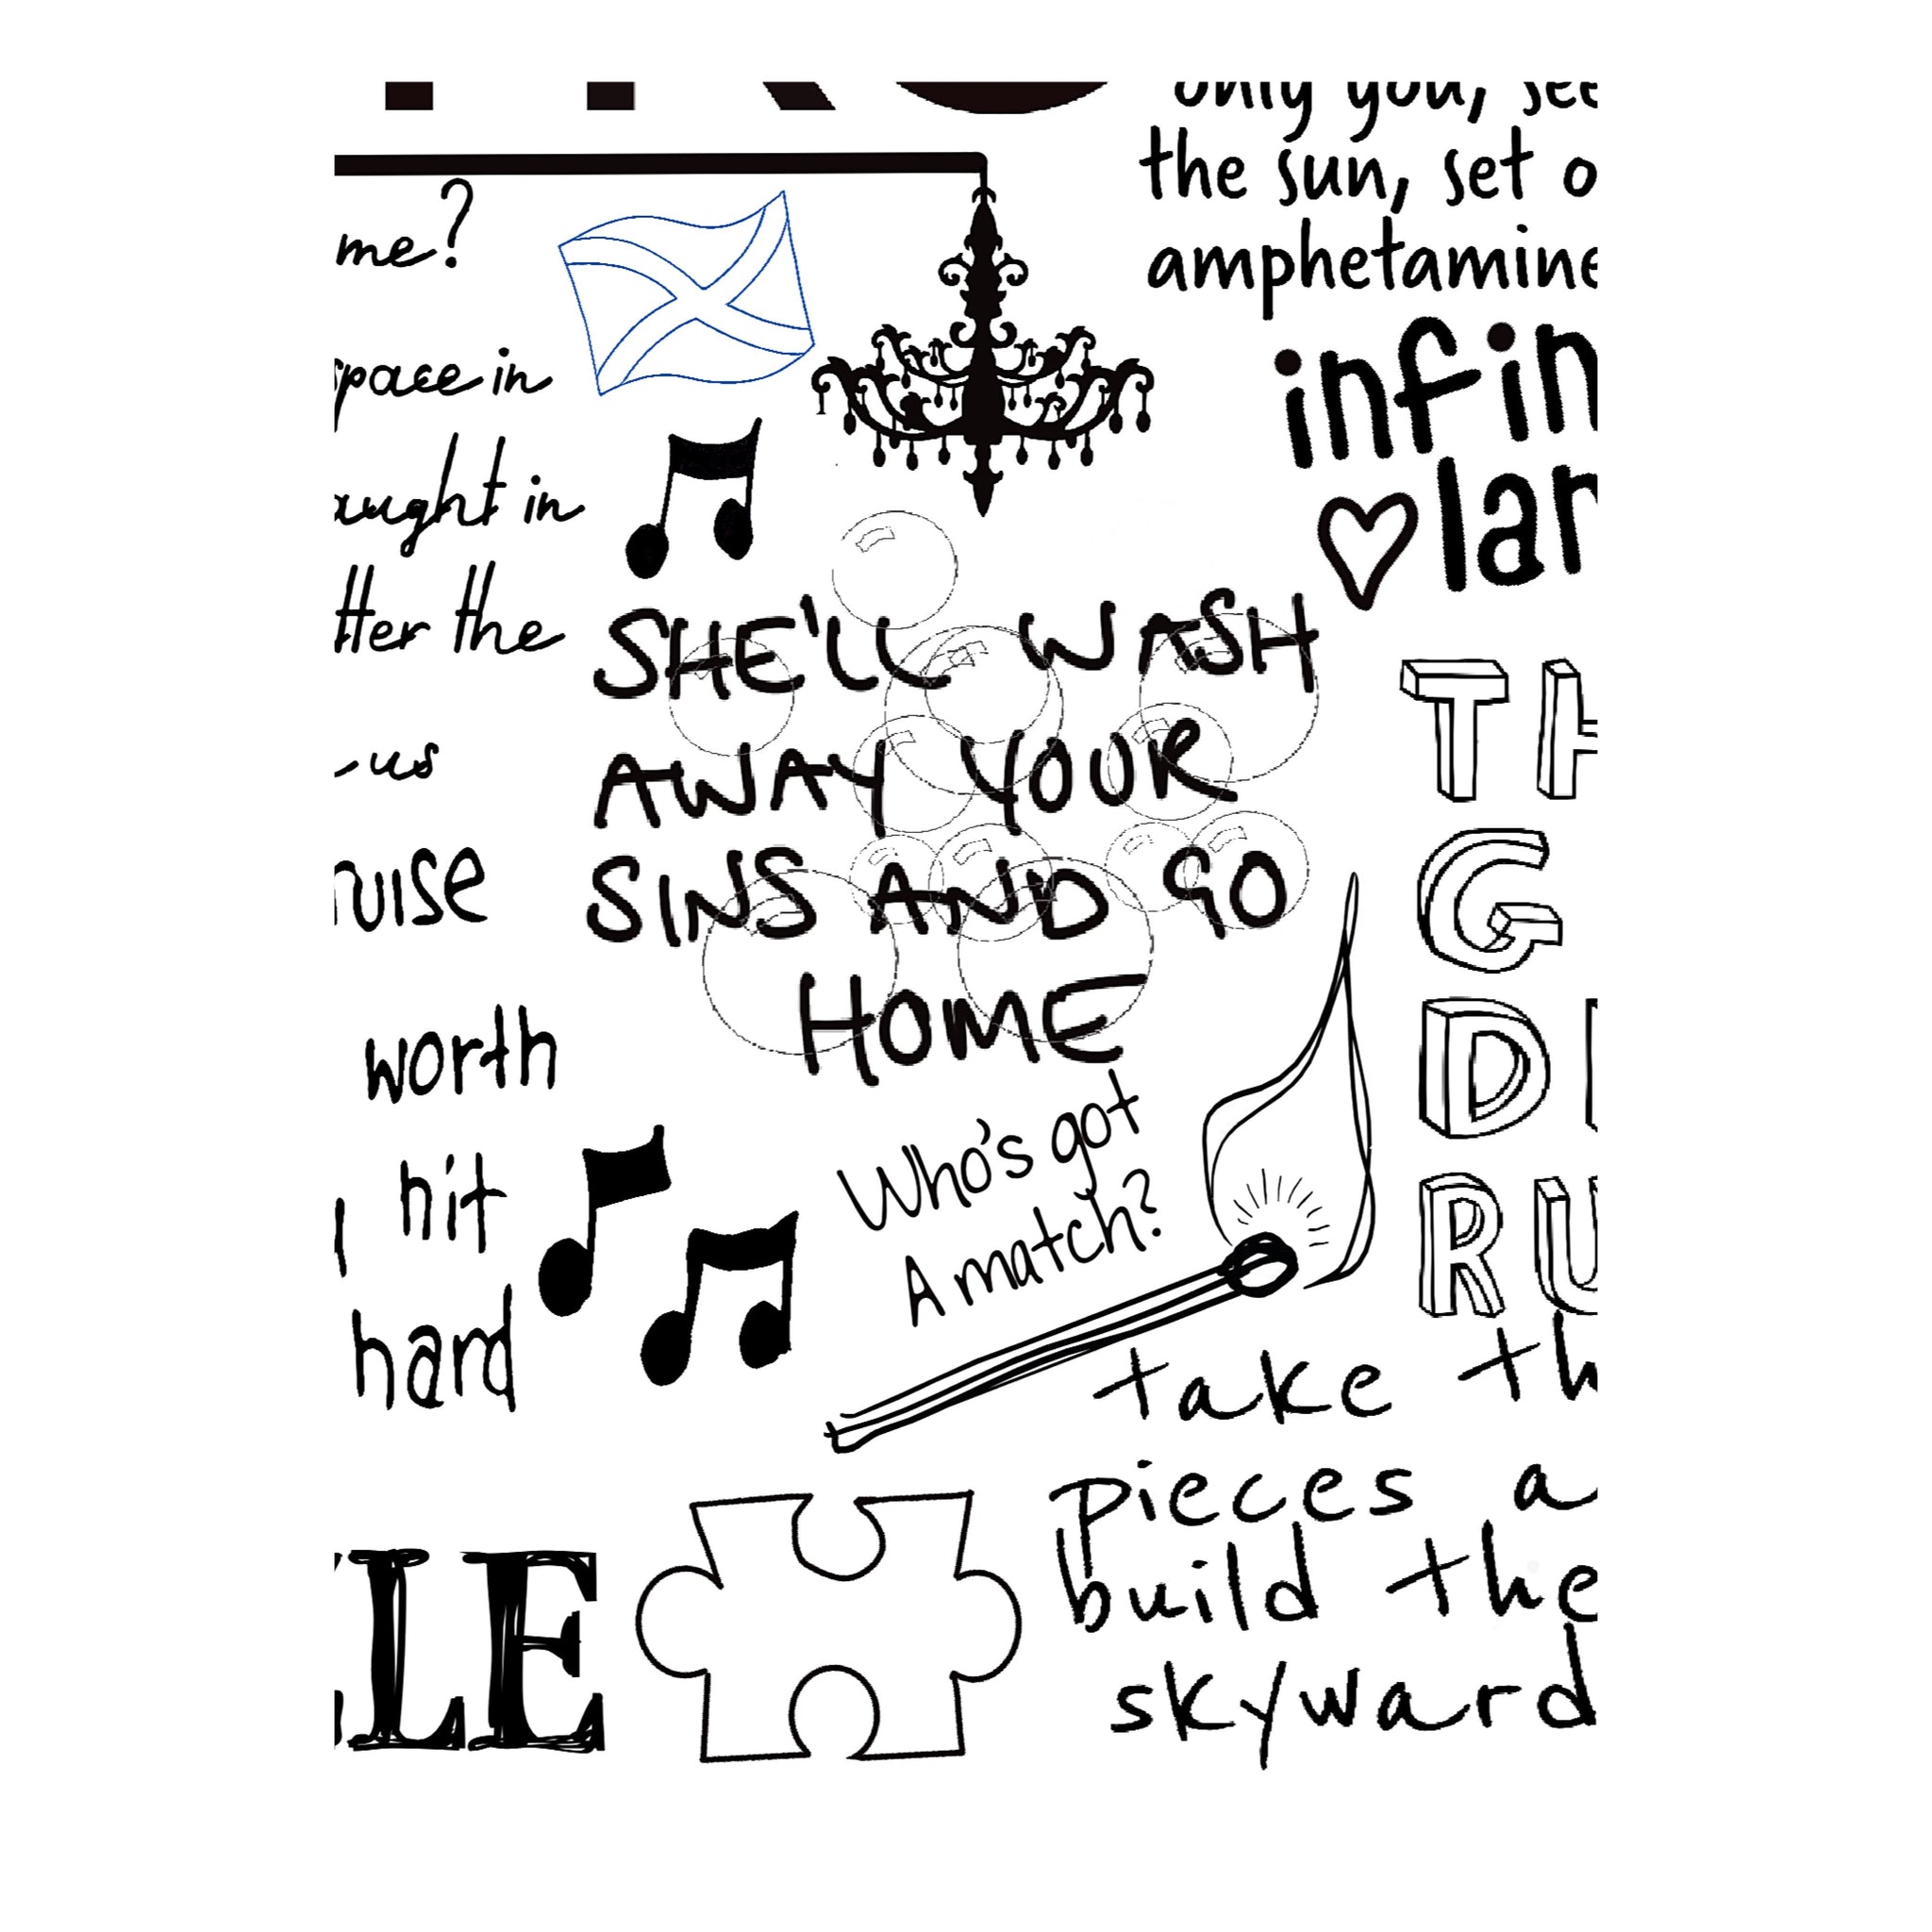 only you, see
the sun, set o
amphetamine
me?
infin
space in
lar
aught in
tter the
SHE'LL WASH
AWAY YOUR
SINS AND GO
HOME
us
TH
G
D
RU
worth
hit
hard
Who's got
A match?
take th
pieces a
build the
skyward
LE